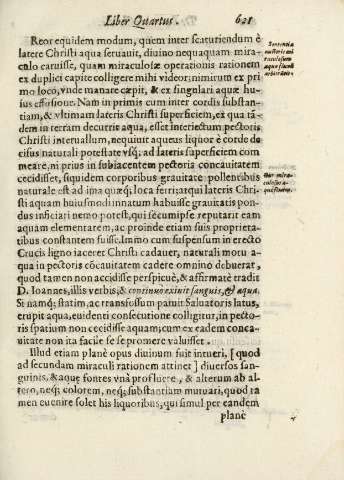 Liber Quartus. 621
Reor equidem modum, quem inter scaturiendum è
latere Christi aqua seruauit, diuino nequaquam mira-
culo caruisse, quam miraculosæ operationis rationem
ex duplici capite colligere mihi videor; nimirum ex pri
mo loco, vnde manare cæpit, & ex singulari aquæ hu-
ius effusione. Nam in primis cum inter cordis substan-
tiam, & vltimam lateris Christi superficiem, ex qua tã-
dem in terram decurrit aqua, esset interiectum pectoris
Christi interuallum, nequiuit aqueus liquor è corde de
cisus naturali potestate vsq; ad lateris superficiem com
meare, ni prius in subiacentem pectoris concauitatem
cecidisset, siquidem corporibus grauitate pollentibus
naturale est ad ima quæq; loca ferri; atqui lateris Chri-
sti aquam huiusmodi innatam habuisse grauitatis pon-
dus inficiari nemo potest, qui secum ipse reputarit eam
aquam elementarem, ac proinde etiam suis proprieta-
ribus constantem fuisse. Immo cum suspensum in erecto
Crucis ligno iaceret Christi cadauer, naturali motu a-
qua in pectoris cõcauitatem cadere omninò debuerat,
quod tamen non accidisse perspicuè, & affirmatè tradit
D. Ioannes, illis verbis, & continuò exiuit sanguis, & aqua.
Si namq; statim, ac transfossum patuit Saluatoris latus,
erupit aqua, euidenti consecutione colligitur, in pecto-
ris spatium non cecidisse aquam; cum ex eadem conca-
uitate non ita facile se se promere valuisset.
Illud etiam planè opus diuinum fuit intueri, [quod
ad secundam miraculi rationem attinet] diuersos san-
guinis, & aquę fontes vnà profluere, & alterum ab al-
tero, neq; colorem, neq; substantiam mutuari, quod ta
men euenire solet his liquoribus, qui simul per eandem
planè
Sententia
auctoris mi
raculosum
aquæ fluxũ
arbitrãtis.